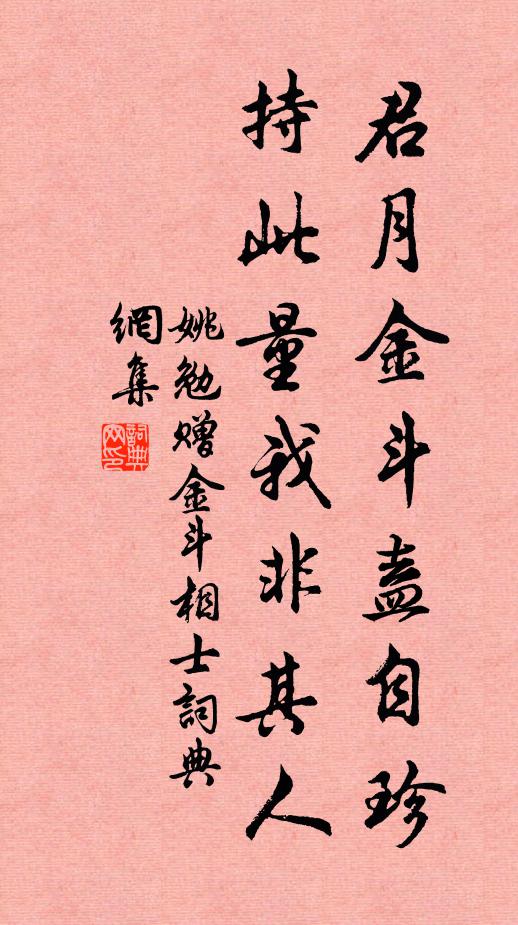 君月金斗盍自珍
持此量我非其人
姚勉赠金斗相士詞典
網集
詞典
网印